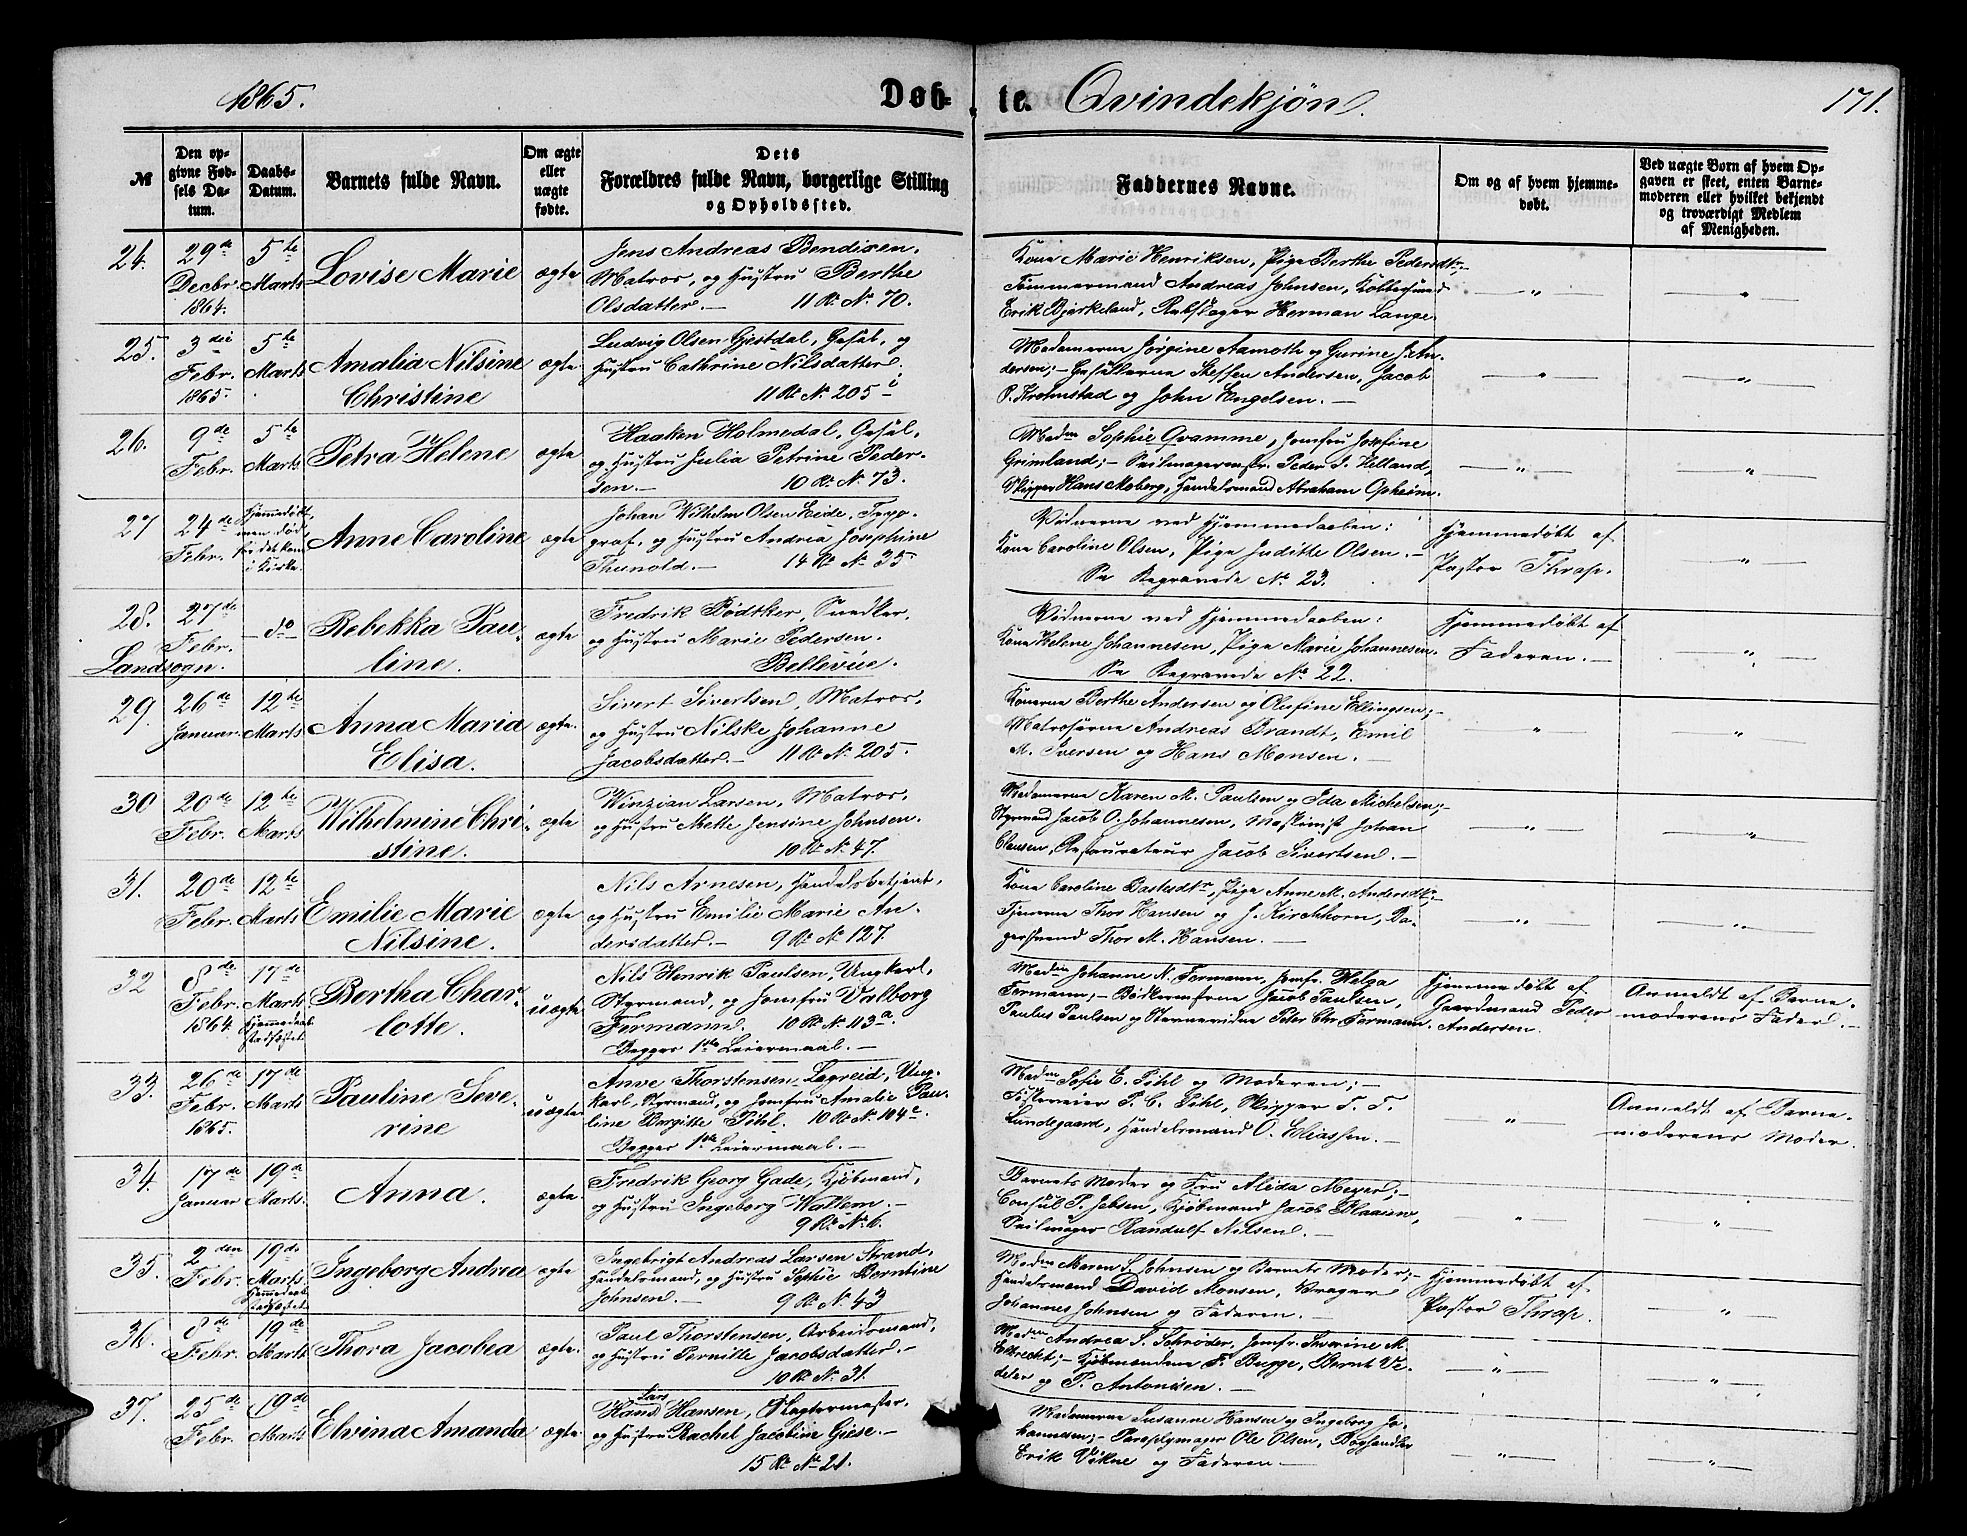 1865.
Døb-
te. Qvindekjøn.
171.
№
Den op-
givne Fød-
sels Da-
tum.
Daabs-
Datum.
Barnets fulde Navn.
Om ægte
eller
uægte
fødte.
Dets
Forældres fulde Navn, borgerlige Stilling
og Opholdssted.
Faddernes Navne.
Om og af hvem hjemme-
døbt.
Ved uægte Børn af hvem Op-
gaven er skeet, enten Barne-
moderen eller hvilket bekjendt
og troværdigt Medlem
af Menigheden.
24.
29de
Decbr.
1864.
5te
Marts
Lovise Marie
ægte
Jens Andreas Bendixen,
Matros, og Hustru Berthe
Olsdatter.— 11 R. No 70.
Kone Marie Henriksen, Pige Berthe Pedersdtr;—
Tømmermand Andreas Johnsen,
Erik Bjørkeland, Rebslager Herman Lange.
25.
3die
Febr.
1865.
5te
Marts
Amalia Nilsine
Christine
ægte
Ludvig Olsen Gjestdal, Gesel, og
Hustru Cathrine Nilsdatter.
11 R. No 205
Madamerne Jørgine Aamoth og Gurine J. An-
dersen;— Gesellerne Steffen Andersen, Jacob
P. Krohnstad og John Engelsen.—
26.
9de
Febr.
5te
Marts
Petra Helene
ægte
Haaken Holmedal, Gesel,
og Hustru Julia Petrine Peder-
sen.— 10 R. No 73.
Madm Sophie Qvamme, Jomfru Josefine
Grimland;— Seilmagermstr. Peder S. Helland,
Skipper Hans Moberg, Handelsmand Abraham Opheim.
27
24de
Febr.
Hjemmedøbt,
men død
før det kom
i Kirke.
Anne Caroline
ægte
Johan Wilhelm Olsen Eide, Typo-
graf, og Hustru Andrea Josephine
Thunold.— 14 R. No 35
Vidnerne ved Hjemmedaaben:
Kone Caroline Olsen, Pige Juditte Olsen.—
Se Begravede No 23.
Hjemmedøbt af
Pastor Thrap.
28.
Landsogn.
27de
Febr.
do
Rebekka Pau-
line.
ægte
Fredrik Bødtker, Snedker,
og Hustru Marie Pedersen.
Bellevüe.
Vidnerne ved Hjemmedaaben:
Kone Helene Johannesen, Pige Marie Johannesen.
Se Begravede No 22.
Hjemmedøbt af
Faderen.—
29.
26de
Januar.
12te
Marts
Anna Maria
Elisa.
ægte.
Sivert Sivertsen, Matros,
og Hustru Nilske Johanne
Jacobsdatter.— 11 R. No 205.
Konerne Berthe Andersen og Olufine Ellingsen;—
Matroserne Andreas Brandt, Emil
M. Iversen og Hans Monsen.—
30
20de
Febr.
12te
Marts
Wilhelmine Chri-
stine.
ægte
Winzian Larsen, Matros,
og Hustru Mette Jensine Johnsen.
10 R. No 47.
Madamerne Karen M. Paulsen og Ida Michelsen;—
Styrmand Jacob O. Johannesen, Maskinist Johan
Clausen, Restaurateur Jacob Sivertsen.—
31.
20de
Febr.
12te
Marts
Emilie Marie
Nilsine.
ægte
Nils Arnesen, Handelsbetjent,
og Hustru Emilie Marie An-
dersdatter.— 9 R. No 127.
Kone Caroline Bastesdtr, Pige Anne M. Andersdtr;—
Tjenerne Thor Hansen og J. Kirchhorn, Ba-
gersvend Thor M. Hansen.—
32
8de
Febr.
1864.
17de
Marts
Hjemmedaab
stadfæstet.
Bertha Char-
lotte.
uægte
Nils Henrik Paulsen, Ungkarl,
Styrmand, og Jomfru Valborg
Formann. 10 R. No 113a.
Begges 1ste Leiermaal.—
Madm Johanne N. Formann, Jomfr. Helga
Formann;— Bødkersvendene Jacob Paulsen,
Paulus Paulsen og Peter Chr. Formann.
Hjemmedøbt af
Gaardmand Peder
Andersen.
Anmeldt af Barne-
moderens Fader.—
33.
26de
Febr.
1865.
17de
Marts
Pauline Seve-
rine
uægte
Anve Thorstensen Lagreid, Ung-
karl, Styrmand, og Jomfru Amalie Pau-
line Birgitte Pihl. 10 R. No 104c.
Begges 1ste Leiermaal.—
Madm Sofie E. Pihl og Moderen;—
P. C. Pihl, Skipper T. T.
Lundegaard, Handelsmand O. Eliassen.—
Anmeldt af Barne-
moderens Moder.
34.
17de
Januar
19de
Marts
Anna.
ægte.
Fredrik Georg Gade, Kjøbmand,
og Hustru Ingeborg Wallem.—
9 R. No 6.
Barnets Moder og Fru Alida Meyer;—
Consul P. Jebsen, Kjøbmand Jacob Blaauw,
Seilmager Randulf Nilsen.
35.
2den
Febr.
19de
Marts
Hjemmedaab
stadfæstet.
Ingeborg Andrea
ægte
Ingebrigt Andreas Larsen Strand,
Handelsmand, og Hustru Sophie Berntine
Johnsen.— 9 R. No 43
Madm Maren S. Johnsen og Barnets Moder;—
Handelsmand David Monsen, Vrager
Johannes Johnsen og Faderen.—
Hjemmedøbt af
Pastor Thrap.
36.
8de
Febr.
19de
Marts
Thora Jacobea
ægte.
Paul Thorstensen, Arbeidsmand,
og Hustru Pernille Jacobsdatter.—
10 R. No 31.
Madm Andrea S. Schrøder, Jomfr. Severine M.
Ellrecht;— Kjøbmændene F. Bugge, Bernt Ve-
deler og P. Antonisen.—
37.
25de
Febr.
19de
Marts
Elvina Amanda
ægte
Lars
Hans Hansen, Slagtermester,
og Hustru Rachel Jacobine Giese.—
15 R. No 21.
Madamerne Susanne Hansen og Ingeborg Jo-
hannesen;— Paraplymager Ole Olsen, Boghandler
Erik Vikne og Faderen.—